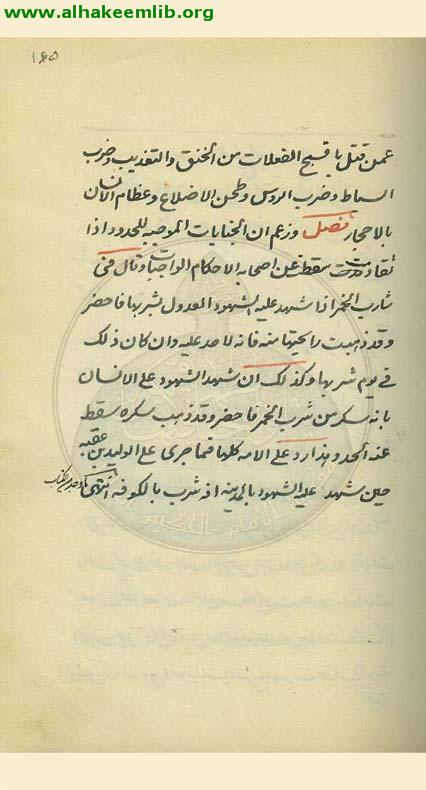 www.alhakeemlib.org
١٤٥
عمن قتل باقبح الفعلات من الخنق والتغذيب وضرب
السياط وضرب الروس وطحن الاضلاع وعظام الانسان
بالاحجار فصل وزعم ان الجنايات الموجبه للحدود اذا
تقادمت سقطت عن اصحابه الاحكام الواجبات وقال في
شارب الخمر اذا شهد عليه الشهود العدول بشربها فاحضر
وقد ذهبت رايحتها منه فانه لا حد عليه وان كان ذلك
في يوم شربها وكذلك ان شهد الشهود على الانسان
بانه سكر من شرب الخمر فاحضر وقد ذهب سكره سقط
عنه الحد وهذا رد على الامه كلها فيما جرى على الوليد بن عقبه
حين شهد عليه الشهود بالمدينه اذ شرب بالكوفه انتهى ما وجد من الكتاب